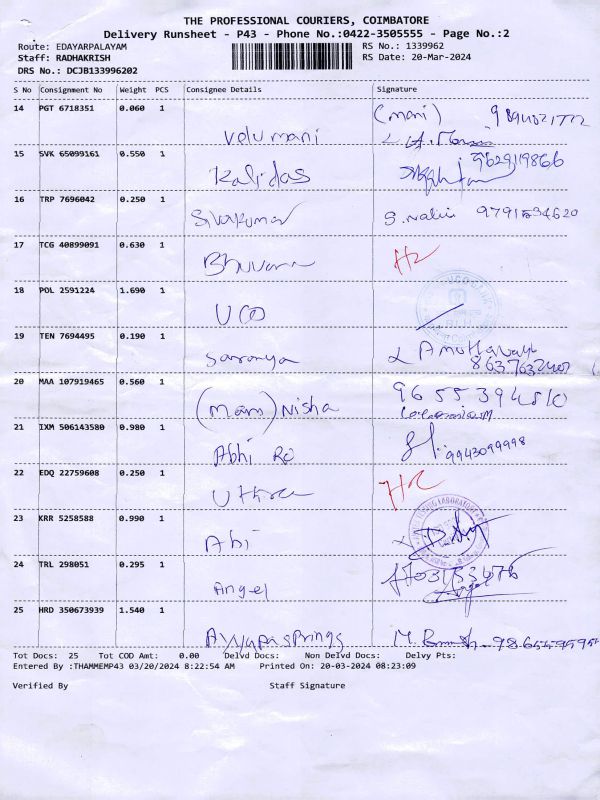 THE PROFESSIONAL COURIERS, COIMBATORE
Delivery Runsheet - P43 - Phone No.:0422-3505555 - Page No.:2
Route: EDAYARPALAYAM RS No.: 1339962
Staff: RADHAKRISH RS Date: 20-Mar-2024
DRS No.: DCJB133996202
S No Consignment No Weight PCS Consignee Details Signature
14 PGT 6718351 0.060 1 Velumani (mani)
15 SVK 65099161 0.550 1 Kalidas 9629119866
16 TRP 7696042 0.250 1 Sivakumar S. Nalini
17 TCG 40899091 0.630 1 Bhuvana
18 POL 2591224 1.690 1 UCO
19 TEN 7694495 0.190 1 Saranya
20 MAA 107919465 0.560 1 (mam) Nisha
21 IXM 506143580 0.980 1 Abhi Ro 9943099998
22 EDQ 22759608 0.250 1 Uthra
23 KRR 5258588 0.990 1 Abi
24 TRL 298051 0.295 1 Angel
25 HRD 350673939 1.540 1 Ayyapa springs
Tot Docs: 25 Tot COD Amt: 0.00 Delvd Docs: Non Delvd Docs: Delvy Pts:
Entered By :THAMMEMP43 03/20/2024 8:22:54 AM Printed On: 20-03-2024 08:23:09
Verified By Staff Signature